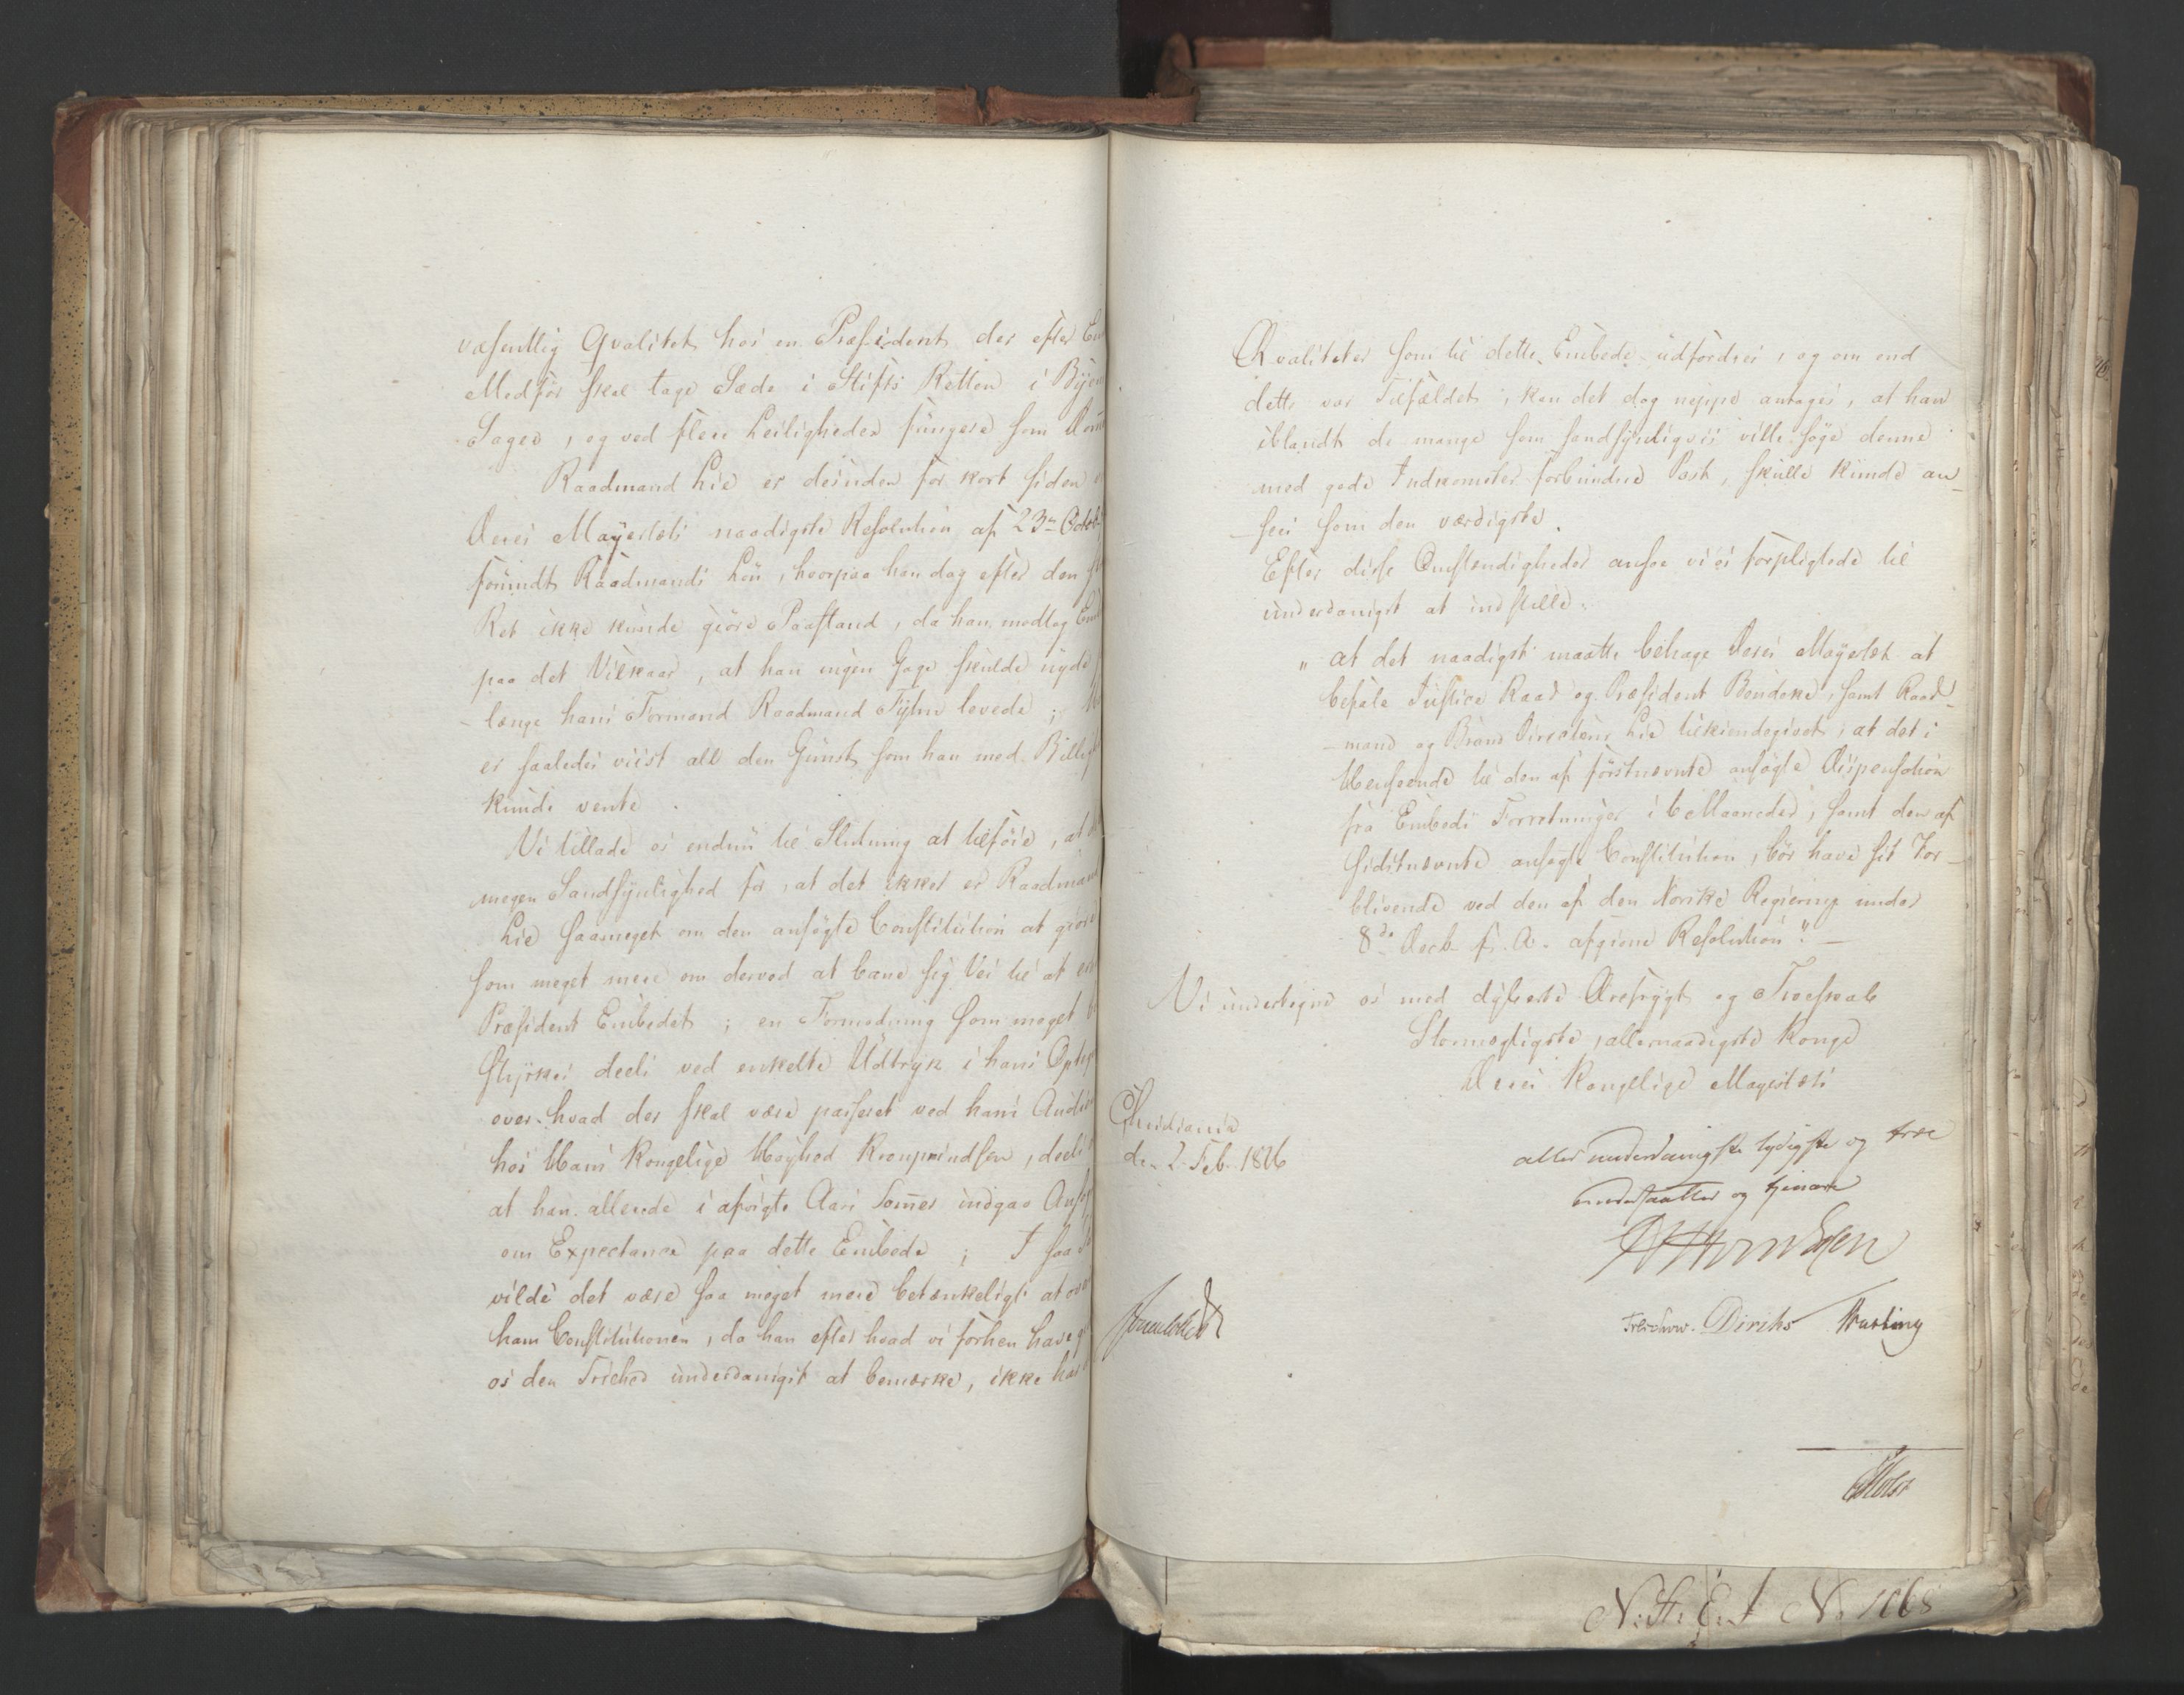 væsentlig Qvalitet hos en Præsident der efter
Medfør skal tage Sæde i Stifts Retten i
Sager, og ved flere Leiligheder fungere som
Raadmand Lie er desuden for kort siden
Deres Mayestæts naadigste Resolution af 23de
forundt Raadmands Løn, hvorpaa han dog efter den
Ret ikke kunde giöre Paastand, da han modtog
paa det Vilkaar, at han ingen Gage skulde nyde
længe hans Formand Raadmand Fyhn levede;
er saaledes viist all den Gunst som han med
kunde vente.
Vi tillade os endnu til Slutning at tilföie, at
megen Sandsynlighed for, at det ikke er Raadmand
Lie saameget om den ansögte Constitution at giöre
som meget mere om derved at bane sig Vei til at
Præsident Embedet; en Formodning som meget
styrkes deels ved enkelte Udtryk i hans
over hvad der skal være passeret ved hans
hos Hans Kongelige Høyhed Kronprindsen, deels
at han allerede i afvigte Aars Somer indgav
om Expectance paa dette Embede; I saa
vilde det være saa meget mere betænkeligt at
ham Constitutionen, da han efter hvad vi forhen have
os den Friehed underdanigst at bemærke, ikke har
Qvaliteter som til dette Embede udfordres, og om end
dette var Tilfældet, kan det dog neppe antages, at han
iblandt de mange som sandsynligviis ville söge denne
med gode Indkomster forbundne Post, skulle kunde an-
sees som den værdigste.
Efter disse Omstændigheder ansee vi os forpligtede til
underdanigst at indstille:
"at det naadigst maatte behage Deres Mayestæt at
befale Justice Raad og Præsident Bendeke, samt Raad-
mand og Brand Directeur Lie tilkiendegivet, at det i
Henseende til den af förstnævnte ansögte Dispensation
fra Embeds Forretninger i 6 Maaneder, samt den af
sidstnævnte ansögte Constitution, bör have sit For-
blivende ved den af den Norske Regiering under
8de Decb. f. A. afgivne Resolution". -
Vi undertegne os med dybeste Ærefrygt og Troeskab
Stormægtigste, allernaadigste Konge
Deres Kongelige Mayestæts
Christiania
den 2 Feb. 1816
allerunderdanigste lydigste og troe
undersaatter og tjenere
Diriks
N: A: E: I No 1068